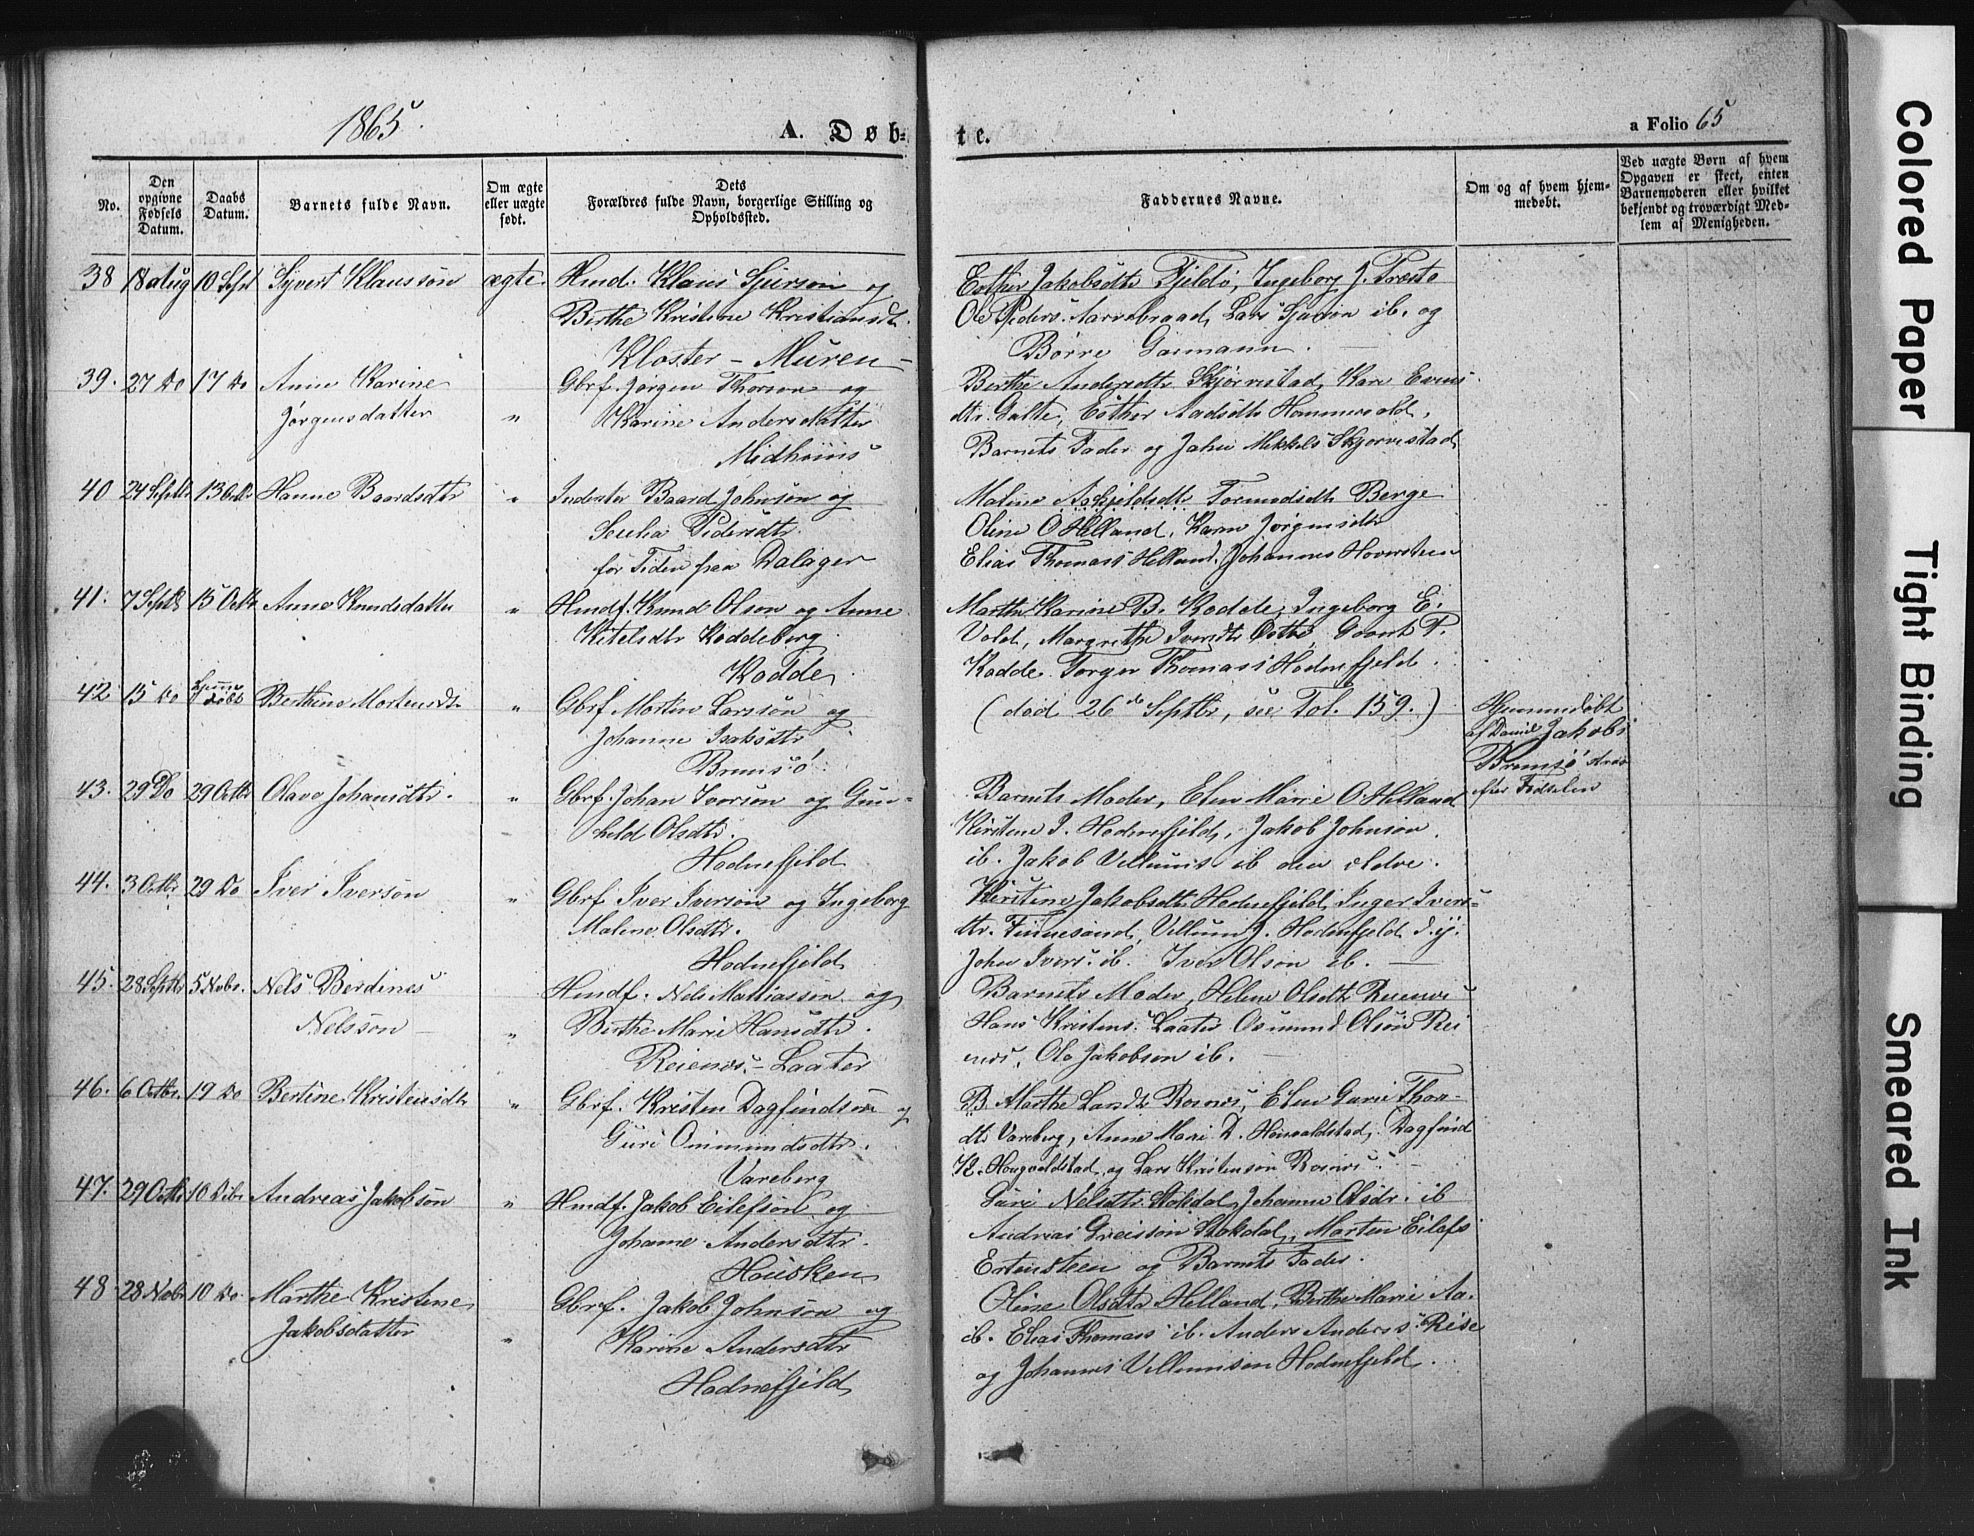 1865.
A. Døb-
te.
a Folio 65
No.
Den opgivne Fødsels Datum.
Daabs Datum.
Barnets fulde Navn.
Om ægte eller uægte født.
Dets Forældres fulde Navn, borgerlige Stilling og Opholdssted.
Faddernes Navne.
Om og af hvem hjem-
medøbt.
Ved uægte Børn af hvem
Opgaven er skeet, enten
Barnemoderen eller hvilket
bekjendt og troværdigt Med-
lem af Menigheden.
38 18 Aug 10 Sept Syvert Klausson ægte. Hmd. Klaus Sjurson og
Berthe Kristine Kristiansdtr.
Kloster - Muren -
Esther Jakobsdtr Fjeldø, Ingeborg J.
Ole Peders. Lars ib. og
Børre Garmann.
39. 27 Do 17 Do Anne Karine
Jørgensdatter " Gbrf. Jørgen Thorson og
Karine Andersdatter
Midhuus
Berthe Andersdtr Skjørvestad, Kari Evens
dtr. Galte, Esther Aadsdtr Hammersvold,
Barnets Fader og John Mikkels Skjorvestad
40 24 Septbr 13 Octbr Hanne Baardsdtr " Inderster Baard Johnson og
Secelia Pedersdtr
for Tiden paa Dalager
Malene Askjeldsdtr Tormodsdtr Berge
Oline O Helland, Karen Jørgensdtr
Elias Thomass Helland, Johannes Hoversteen
41. 7 Septbr 15 Octbr Anne Knudsdatter " Hmdf. Knud Olson og Anne
Ketelsdtr Koddeberg
Kodde
Marthe Karine B. Kodde, Ingeborg E.
Vold, Margrethe Iversdtr P.
Kodde Torger Thomass Hodnefjeld.
42 15 Do Hjemme
døbt Berthine Mortensdtr " Gbrf Morten Larsson og
Johanne Isaksdtr
Brimsø
(død 26de Septbr, see Fol. 159.)
Hjemmedøbt
af Daniel Jakobs
Brimsø strax
efter Fødselen
43. 29 Do 29 Octbr Olava Johansdtr. " Gbrf. Johan Iverson og Gun-
hild Olsdtr.
Hodnefjeld
Barnets Moder, Elen Marie O Helland
Kirstine J. Hodnefjeld, Jakob Johnson
ib. Jakob Villums ib den eldre.
44. 3 Octbr 29 Do Iver Iverson " Gbrf Iver Iverson og Ingeborg
Malene Olsdtr.
Hodnefjeld
Kirstine Jakobsdtr Hodnefjeld, Inger Ivers-
dtr. Finnesand, Villum J. Hodnefjeld d.y.
John Ivers. ib. Iver Olson ib. —
45. 28 Septbr 5 Novbr. Nels Berdines
Nelsson - " Hmdf. Nels Mathiassen og
Berthe Marie Hansdtr.
Reienæs - Laater
Barnets Moder, Helene Olsdtr Reienæs
Hans Kristens. Laater Osmund Olson Rei
enæs, Ole Jakobson ib. —
46. 6 Octbr. 19 Do Bertine Kristensdtr " Gbrf. Kristen Dagfindson og
Guri Ommundsdtr.
Vareberg
B. Marthe Larsdtr Rosnæs, Elen Gurie Thor-
dtr Vareberg, Anne Marie D. Houvaldstad, Dagfind
K. Hougvaldstad, og Lars Kristenson Rosnæs
47. 29 Octbr 10 Decbr. Andreas Jakobson " Hmdf. Jakob Eilefson og
Johanne Andersdtr.
Housken
Guri Nelsdtr Stokdal, Johanne Olsdr. ib
Andreas Greisson Stokdal, Morten Eilefs
Ertensteen og Barnets Fader.
48. 28 Novbr 10 Do. Marthe Kristine
Jakobsdatter " Gbrf. Jakob Johnson og
Karine Andersdtr
Hodnefjeld
Oline Olsdtr Helland, Berthe Marie Aa.
ib. Elias Thomass ib. Anders Anders s. Rise
og Johannes Villumson Hodnefjeld.
Colored Paper
Tight Binding
Smeared Ink